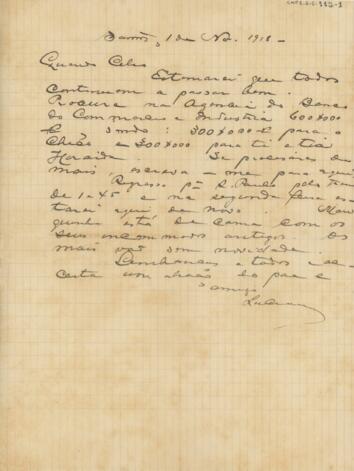 Santos, 1 de No. 1918 -
Querido Celso
Estimarei que todos
continuem a passar bem.
Procura na Agencia do Banco
do Commercio e Industria 600$000
sendo: 300$000 para o
e 300$000 para ti e tia
Heraida. Se precisares de
mais, escreva-me para aqui.
Regresso pª S. Paulo pelo trem
de 1 e 45 e na segunda feira es-
tarei aqui de novo.
está de cama com os
seus incommodos antigos. Os
mais vão sem novidade.
Lembranças a todos e ac-
ceita um abraço do pae e
amigo